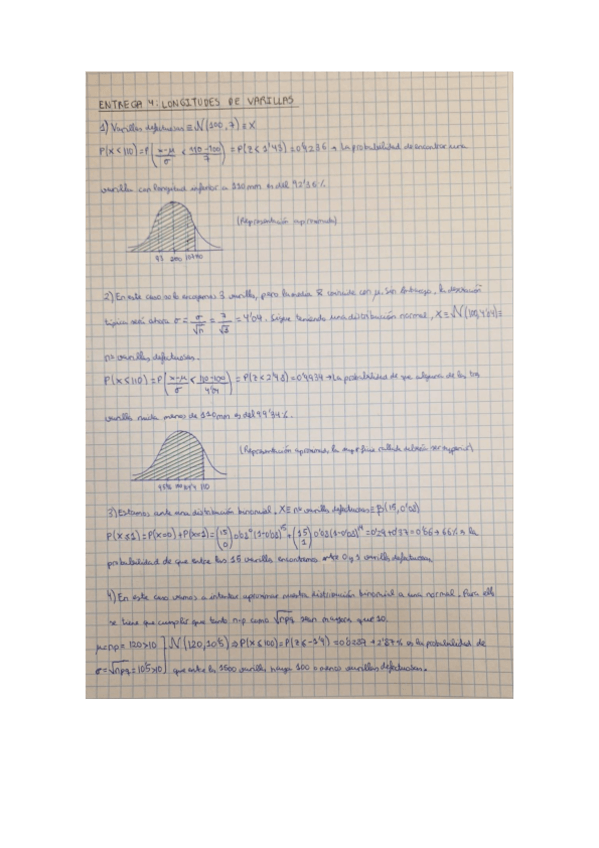 ENTREGA 4: LONGITUDES DE VARILLAS
1) Varillas defectuosas ≡ N(100, 7) = X
P(X < 110) = P(x-μ/σ < 110-100/7) = P(Z < 1'43) = 0'9236 → La probabilidad de encontrar una
varilla con longitud inferior a 110mm es del 92'36%
(Representación aproximada)
93 100 107 110
2) En este caso se escogen 3 varillas, pero la media x̄ coincide con μ. Sin embargo, la desviación
típica será ahora σ = σ/√n = 7/√3 = 4'04. Sigue teniendo una distribución normal, X ≡ N(100, 4'04) ≡
no varillas defectuosas.
P(X ≤ 110) = P(x-μ/σ < 110-100/4'04) = P(Z < 2'48) = 0'9934 → La probabilidad de que alguna de las tres
varillas mida menos de 110mm es del 99'34%.
(Representación aproximada, la superficie rallada debería ser superior)
110
3) Estamos ante una distribución binomial. X ≡ nº varillas defectuosas ≡ β(15, 0'08)
P(X ≤ 1) = P(X=0) + P(X=1) = (15 0) 0'08⁰ (1-0'08)¹⁵ + (15 1) 0'08 (1-0'08)¹⁴ = 0'29 + 0'37 = 0'66 → 66% es la
probabilidad de que entre las 15 varillas encontremos entre 0 y 1 varilla defectuosa.
4) En este caso vamos a intentar aproximar nuestra distribución binomial a una normal. Para ello
se tiene que cumplir que tanto n·p como √npq sean mayores que 10.
μ = np = 120 > 10 ] N(120, 10'5) ⇒ P(X ≤ 100) = P(Z ≤ -1'9) = 0'0287 → 2'87% es la probabilidad de
σ = √npq = 10'5 > 10 ] que entre las 1500 varillas haya 100 o menos varillas defectuosas.